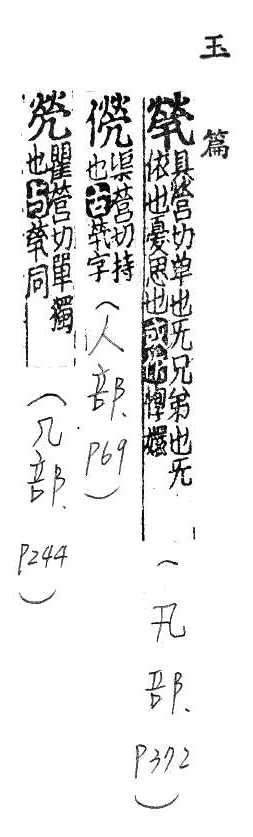 玉篇
煢 具營切單也无兄弟也无
依也憂思也或作惸嬛
（卂部．P372）
渠營切持
也古煢字
（人部．P69）
瞿營切單獨
也与煢同
（儿部．P244）